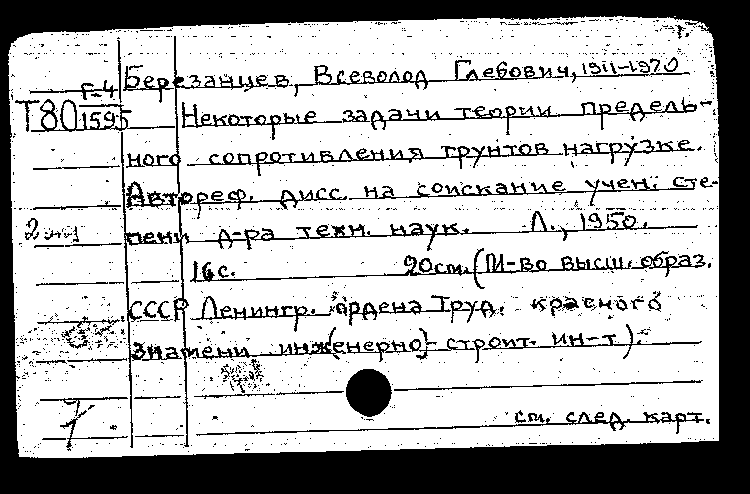 Березанцев, Всеволод Глебович, 1911-1970
Г-4
Т80 1595 Некоторые задачи теории предель-
ного сопротивления грунтов нагрузке.
Автореф. дисс. на соискание учен. сте-
2 экз пени д-ра техн. наук. Л., 1950.
16с. 20см. (М-во высш. образ.
СССР Ленингр. ордена Труд. красного
знамени инж(енерно)-строит. ин-т).
7 см. след. карт.